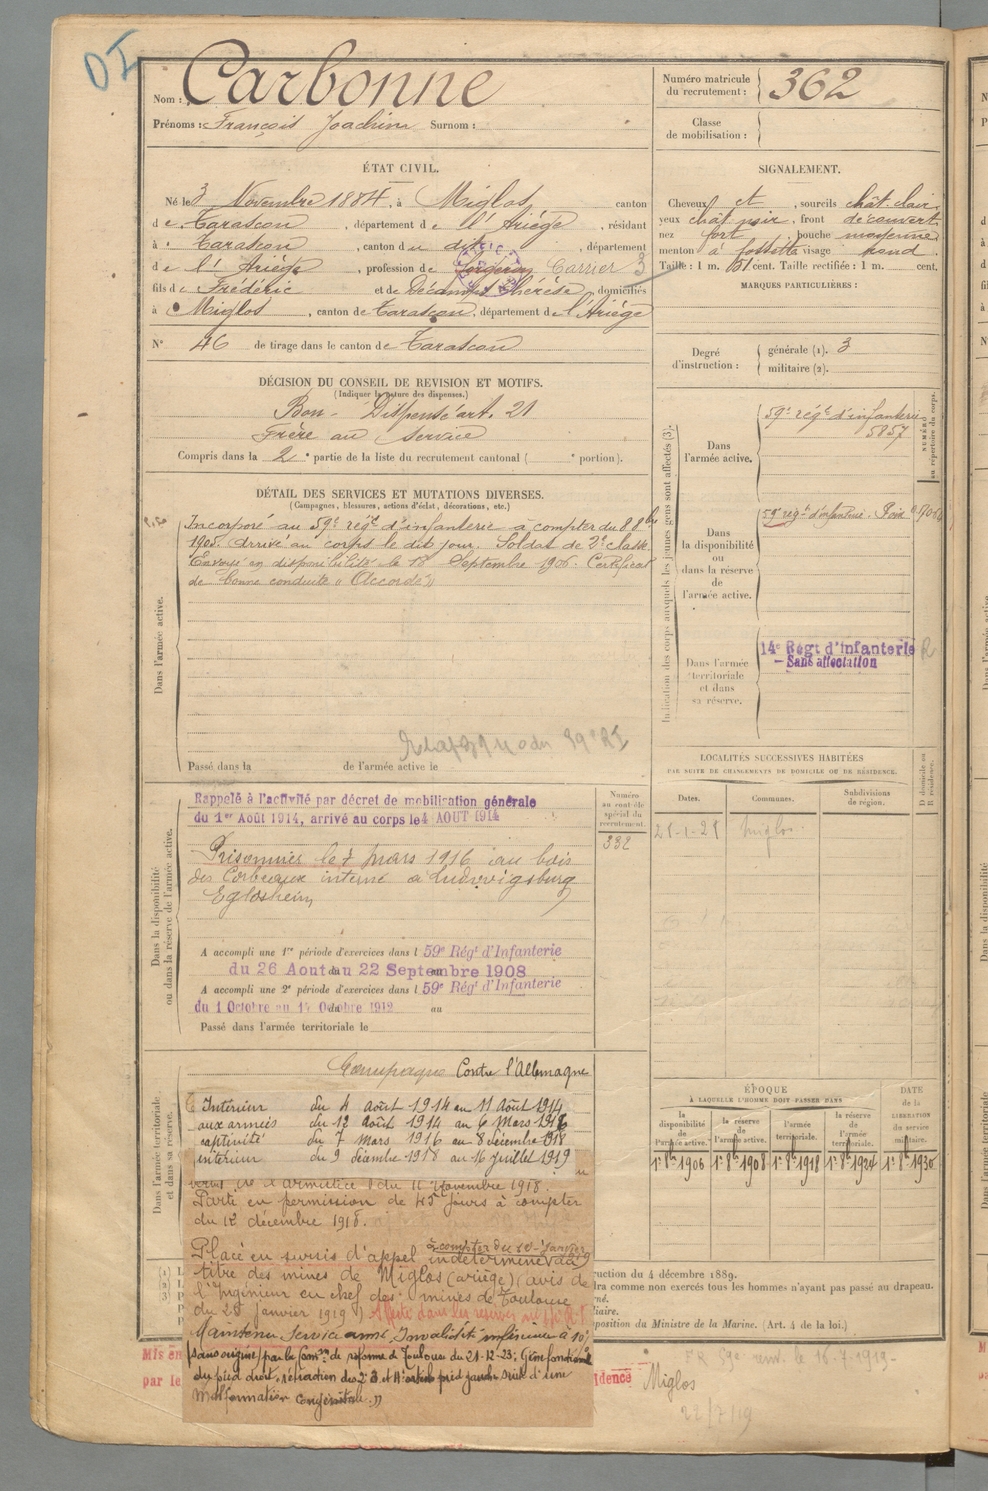 Nom : Carbonne
Prénoms : François Joachim Surnom :
Numéro matricule du recrutement : 362
Classe de mobilisation :
ÉTAT CIVIL.
Né le 3 Novembre 1884, à Miglos, canton
de Tarascon, département de l'Ariège, résidant
à Tarascon, canton du dit, département
de l'Ariège, profession de Carrier 3
fils de Frédéric et de Décamps Thérèse, domiciliés
à Miglos, canton de Tarascon, département de l'Ariège
N° 46 de tirage dans le canton de Tarascon
SIGNALEMENT.
Cheveux et, sourcils chât. clair,
yeux chât. noir, front découvert,
nez fort, bouche moyenne,
menton à fossette visage rond.
Taille : 1 m. 61 cent. Taille rectifiée : 1 m. cent.
MARQUES PARTICULIÈRES :
Degré d'instruction : générale (1). 3
militaire (2).
DÉCISION DU CONSEIL DE REVISION ET MOTIFS.
(Indiquer la nature des dispenses.)
Bon - Dispensé art. 21
Frère au service
Compris dans la 2e partie de la liste du recrutement cantonal ( e portion).
DÉTAIL DES SERVICES ET MUTATIONS DIVERSES.
(Campagnes, blessures, actions d'éclat, décorations, etc.)
Dans l'armée active.
Incorporé au 59e régt d'infanterie à compter du 8 8bre
1905. Arrivé au corps le dit jour. Soldat de 2e classe.
Envoyé en disponibilité le 18 Septembre 1906. Certificat
de bonne conduite « Accordé »
59e RI
Passé dans la de l'armée active le
Indication des corps auxquels les jeunes gens sont affectés (3).
NUMÉRO au répertoire du corps.
Dans l'armée active.
59e régt d'infanterie
5857
Dans la disponibilité ou dans la réserve de l'armée active.
59e régt d'infanterie. Foix
Dans l'armée territoriale et dans sa réserve.
14e Régt d'infanterie
- Sans affectation
LOCALITÉS SUCCESSIVES HABITÉES
PAR SUITE DE CHANGEMENTS DE DOMICILE OU DE RÉSIDENCE.
D domicile ou R résidence.
Dates. Communes. Subdivisions de région.
Miglos
Dans la disponibilité ou dans la réserve de l'armée active.
Numéro au contrôle spécial du recrutement.
332
Rappelé à l'activité par décret de mobilisation générale
du 1er Août 1914, arrivé au corps le 4 AOUT 1914
Prisonnier le 7 mars 1916 au bois
des Corbeaux interné à Ludwigsburg
Eglosheim
A accompli une 1re période d'exercices dans l 59e Régt d'Infanterie
du 26 Aout au 22 Septembre 1908
A accompli une 2e période d'exercices dans l 59e Régt d'Infanterie
du 1 Octobre au 17 Octobre 1912
Passé dans l'armée territoriale le
Dans l'armée territoriale et dans sa réserve.
Campagne Contre l'Allemagne
Intérieur du 4 août 1914 au 11 Août 1914
aux armées du 12 août 1914 au 6 Mars 1916
captivité du 7 Mars 1916 au 8 décembre 1918
intérieur du 9 décembre 1918 au 16 Juillet 1919
de l'armistice du 11 Novembre 1918.
Parti en permission de 45 jours à compter
du 12 décembre 1918.
Placé en sursis d'appel indéterminé à compter du 10 Janvier au
titre des mines de Miglos (ariège) (avis de
l'Ingénieur en chef des mines de Toulouse
du 28 janvier 1919)
Maintenu Service armé Invalidité inférieure à 10%
sans origine par la Comon de réforme de Toulouse du 21-12-23; Gêne fonctionnelle
du pied droit, rétraction des 2e 3 et 4e orteils pied gauche suite d'une
malformation congénitale »
ÉPOQUE
À LAQUELLE L'HOMME DOIT PASSER DANS
la disponibilité de l'armée active. la réserve de l'armée active. l'armée territoriale. la réserve de l'armée territoriale.
DATE de la LIBÉRATION du service militaire.
1er 8bre 1906 1er 8bre 1908 1er 8bre 1918 1er 8bre 1924 1er 8bre 1930
ruction du 4 décembre 1889.
dra comme non exercés tous les hommes n'ayant pas passé au drapeau.
position du Ministre de la Marine. (Art. 4 de la loi.)
Mis en
par le
idence
Miglos
22/7/19